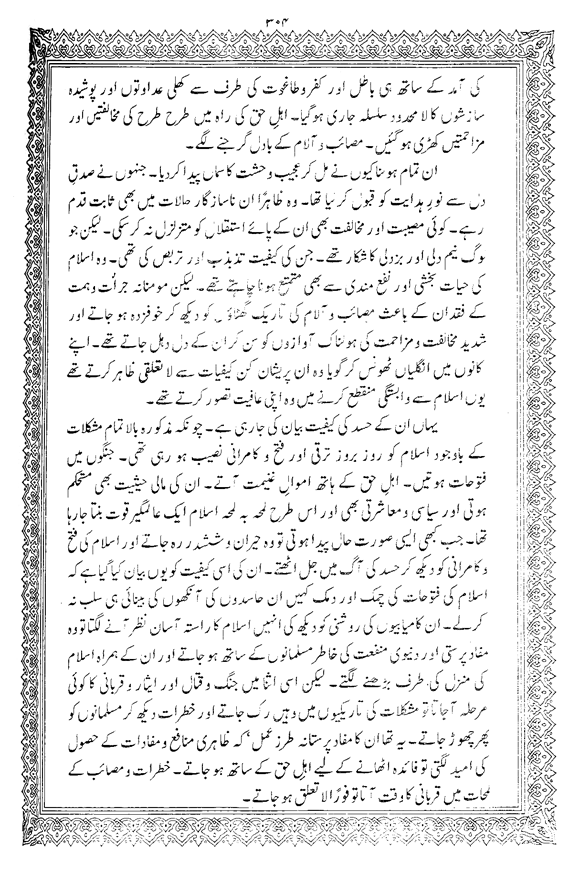 ۳۰۴
کی آمد کے ساتھ ہی باطل اور کفر و طاغوت کی طرف سے کھلی عداوتوں اور پوشیدہ
سازشوں کا لامحدود سلسلہ جاری ہو گیا۔ اہلِ حق کی راہ میں طرح طرح کی مخالفتیں اور
مزاحمتیں کھڑی ہو گئیں۔ مصائب و آلام کے بادل گرجنے لگے۔
ان تمام ہوسناکیوں نے مل کر عجیب وحشت کا سماں پیدا کر دیا۔ جنہوں نے صدقِ
دل سے نورِ ہدایت کو قبول کر لیا تھا۔ وہ ظاہراً ان ناساز گار حالات میں بھی ثابت قدم
رہے۔ کوئی مصیبت اور مخالفت بھی ان کے پائے استقلال کو متزلزل نہ کر سکی۔ لیکن جو
لوگ نیم دلی اور بزدلی کا شکار تھے۔ جن کی کیفیت تذبذب اور تربص کی تھی۔ وہ اسلام
کی حیات بخشی اور نفع مندی سے بھی متمتع ہونا چاہتے تھے۔ لیکن مومنانہ جرأت و ہمت
کے فقدان کے باعث مصائب و آلام کی تاریک گھٹاؤں کو دیکھ کر خوفزدہ ہو جاتے اور
شدید مخالفت و مزاحمت کی ہولناک آوازوں کو سن کر ان کے دل دہل جاتے تھے۔ اپنے
کانوں میں انگلیاں ٹھونس کر گویا وہ ان پریشان کن کیفیات سے لاتعلقی ظاہر کرتے تھے
یوں اسلام سے وابستگی منقطع کرنے میں وہ اپنی عافیت تصور کرتے تھے۔
یہاں ان کے حسد کی کیفیت بیان کی جا رہی ہے۔ چونکہ مذکورہ بالا تمام مشکلات
کے باوجود اسلام کو روز بروز ترقی اور فتح و کامرانی نصیب ہو رہی تھی۔ جنگوں میں
فتوحات ہوتیں۔ اہلِ حق کے ہاتھ اموالِ غنیمت آتے۔ ان کی مالی حیثیت بھی مستحکم
ہوتی اور سیاسی و معاشرتی بھی اور اس طرح لمحہ بہ لمحہ اسلام ایک عالمگیر قوت بنتا جا رہا
تھا۔ جب کبھی ایسی صورت حال پیدا ہوتی تو وہ حیران و ششدر رہ جاتے اور اسلام کی فتح
و کامرانی کو دیکھ کر حسد کی آگ میں جل اٹھتے۔ ان کی اسی کیفیت کو یوں بیان کیا گیا ہے کہ
اسلام کی فتوحات کی چمک اور دمک کہیں ان حاسدوں کی آنکھوں کی بینائی ہی سلب نہ
کر لے۔ ان کامیابیوں کی روشنی کو دیکھ کی انہیں اسلام کا راستہ آسان نظر آنے لگتا تو وہ
مفاد پرستی اور دنیوی منفعت کی خاطر مسلمانوں کے ساتھ ہو جاتے اور ان کے ہمراہ اسلام
کی منزل کی طرف بڑھنے لگتے۔ لیکن اسی اثنا میں جنگ و قتال اور ایثار و قربانی کا کوئی
مرحلہ آ جاتا تو مشکلات کی تاریکیوں میں وہیں رک جاتے اور خطرات دیکھ کر مسلمانوں کو
پھر چھوڑ جاتے۔ یہ تھا ان کا مفاد پرستانہ طرزِ عمل‘ کہ ظاہری منافع و مفادات کے حصول
کی امید لگتی تو فائدہ اٹھانے کے لیے اہلِ حق کے ساتھ ہو جاتے۔ خطرات و مصائب کے
لمحات میں قربانی کا وقت آتا تو فوراً لا تعلق ہو جاتے۔